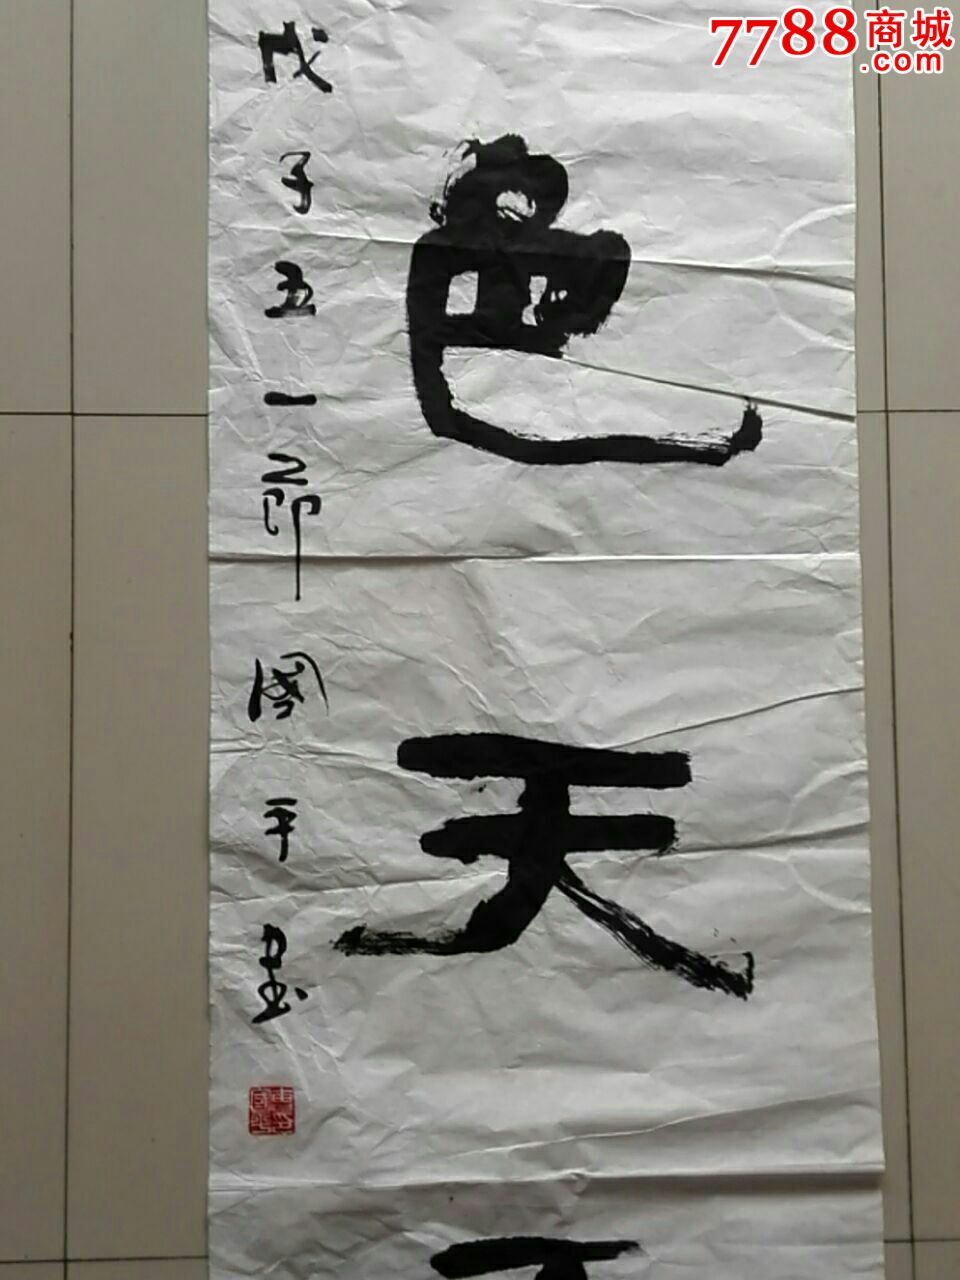 7788商城
.com
色天
戊子五一节國平書